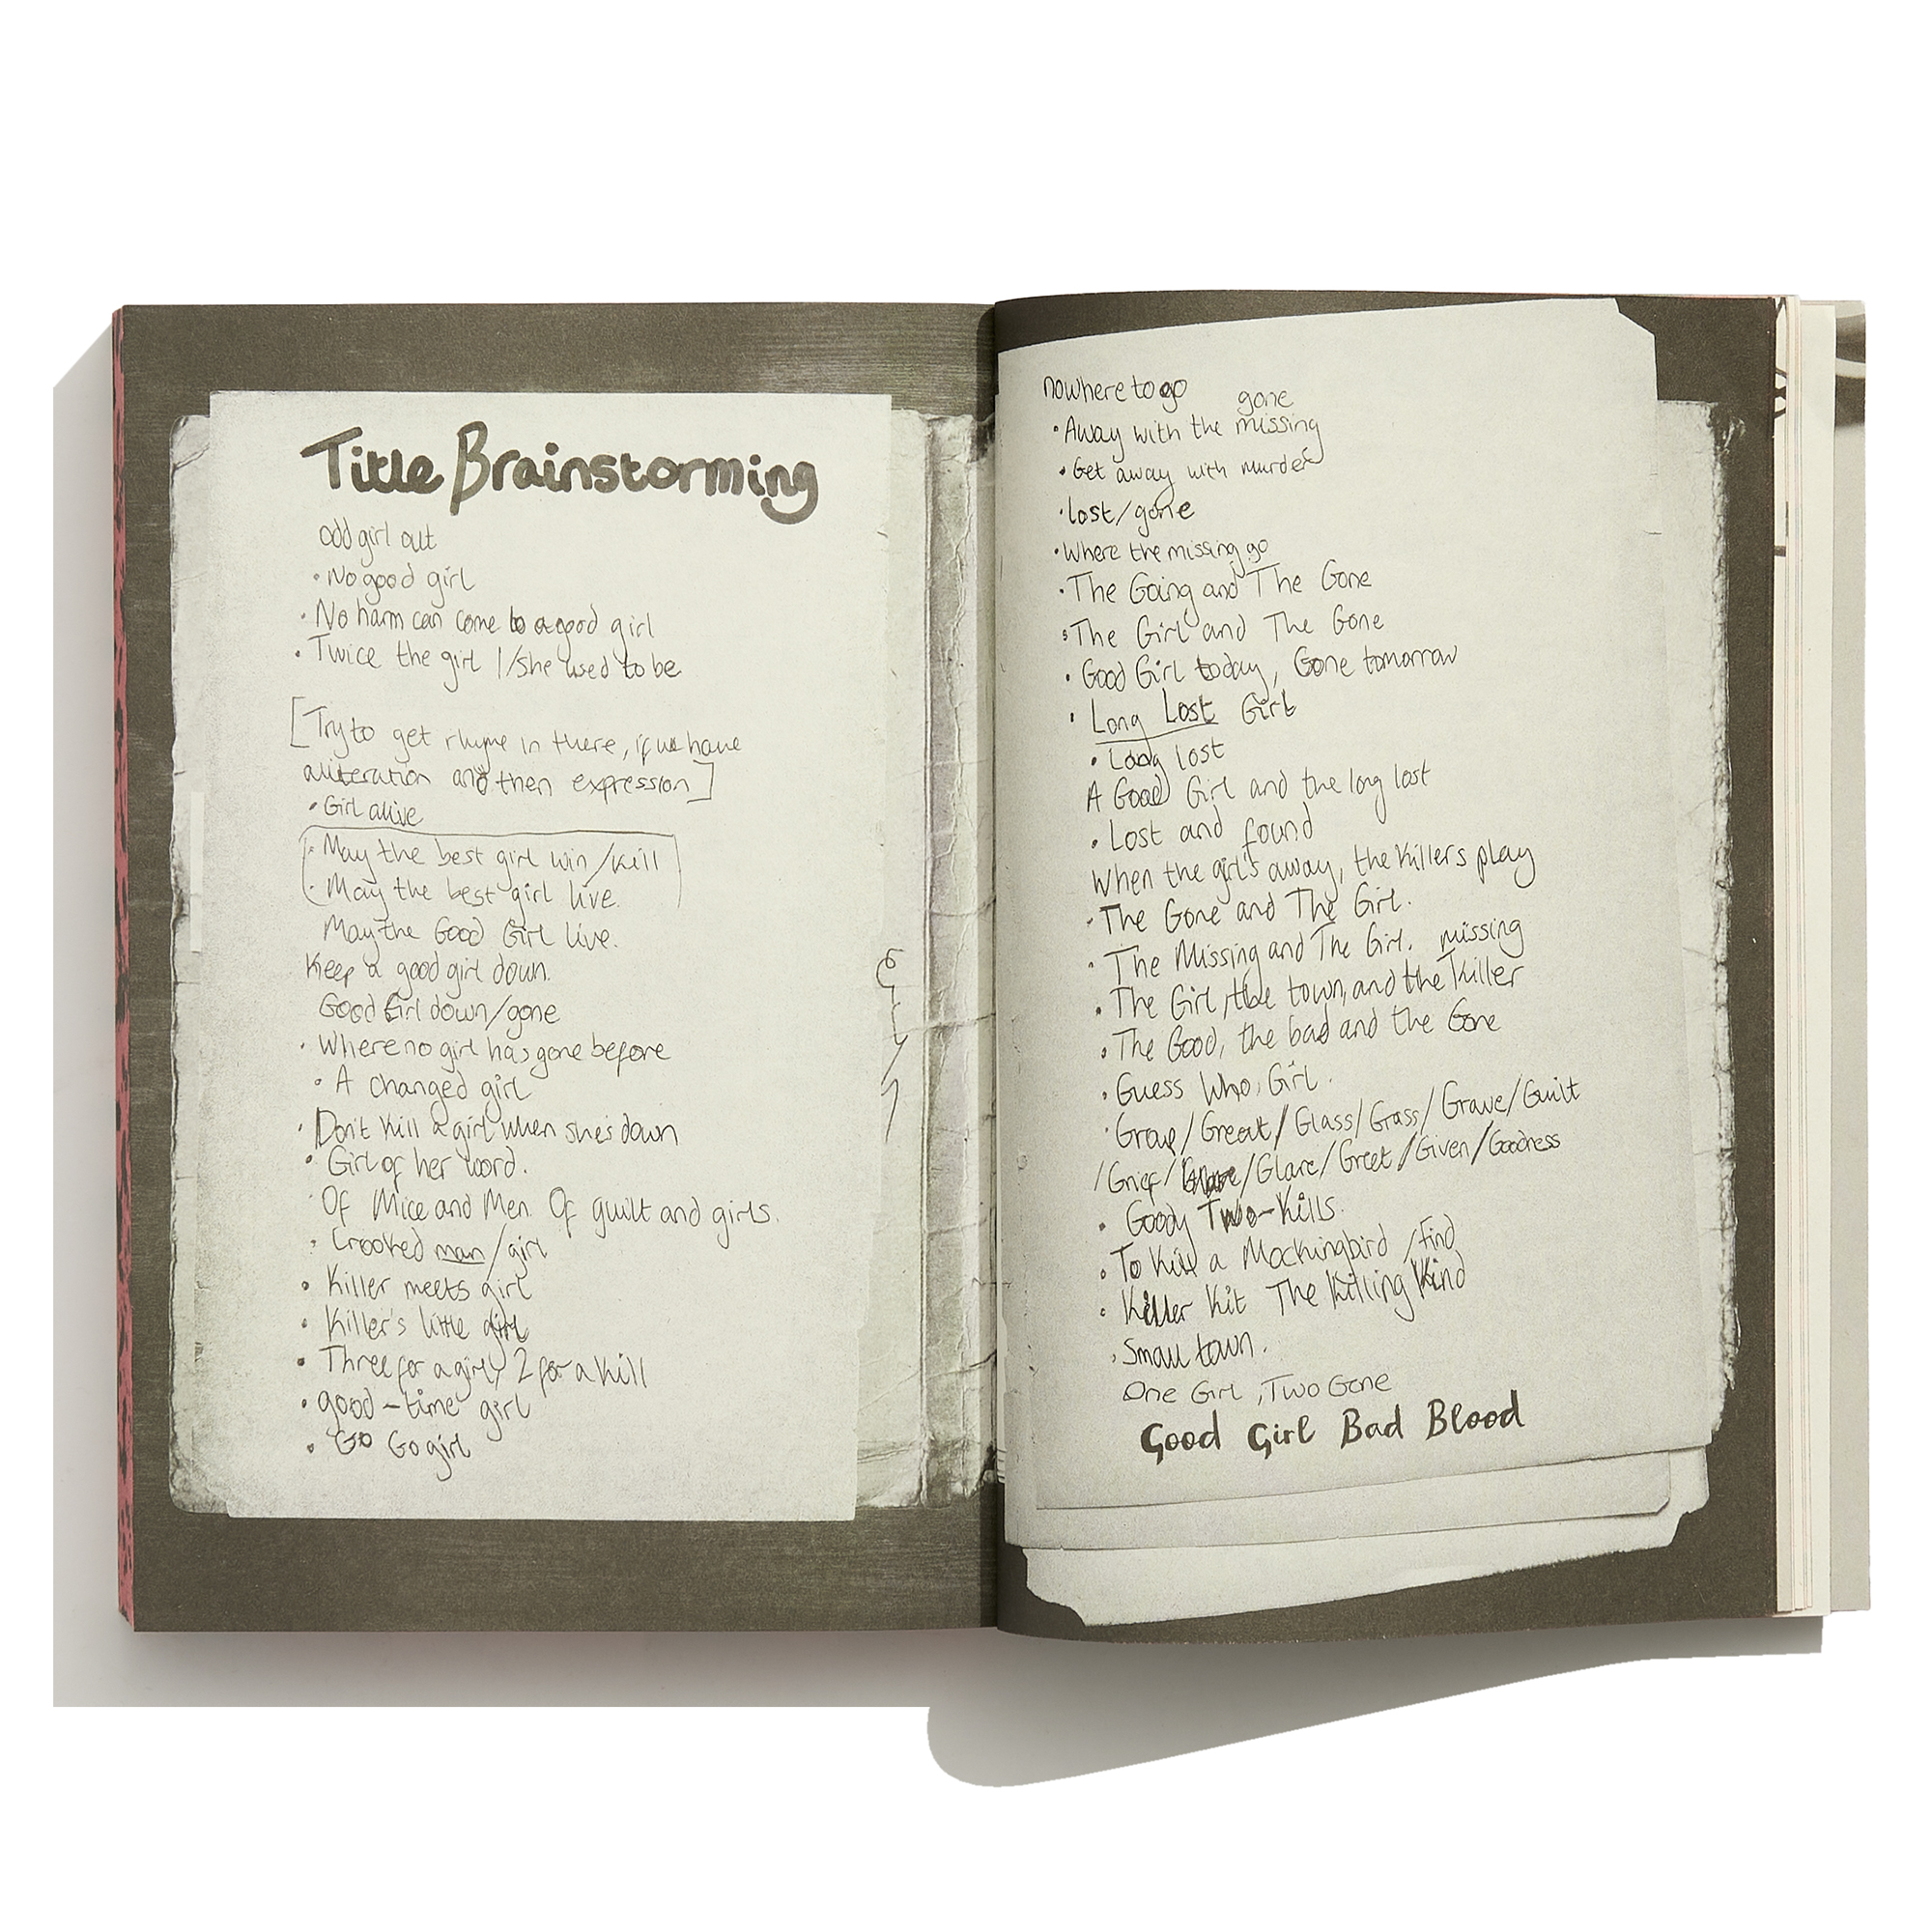 Title Brainstorming
odd girl out
• No good girl
• No harm can come to a good girl
• Twice the girl I/she used to be
[Try to get rhyme in there, if we have
aliteration and then expression]
• Girl alive
• May the best girl win/kill
• May the best girl live.
May the Good Girl live.
Keep a good girl down.
Good Girl down/gone
• Where no girl has gone before
• A changed girl
• Don't kill a girl when she's down
• Girl of her word.
Of Mice and Men. Of guilt and girls.
• Crooked man/girl
• Killer meets girl
• Killer's little girl
• Three for a girl, 2 for a kill
• good-time girl
• Go Go girl
nowhere to go
gone
• Away with the missing
• Get away with murder
• lost/gone
• Where the missing go
• The Going and The Gone
• The Girl and The Gone
• Good Girl today, Gone tomorrow
• Long Lost Girl
• Long lost
A Good Girl and the long lost
• Lost and found
When the girl's away, the killers play
• The Gone and The Girl.
• The Missing and The Girl. missing
• The Girl, the town, and the Killer
• The Good, the bad and the Gone
• Guess Who, Girl.
• Group/Great/Glass/Grass/Grave/Guilt
/Grief/ /Glare/Greet/Given/Goodness
• Goody Two-Kills.
• To Kill a Mockingbird /Find
• Killer Kit The Killing Kind
• Small town.
One Girl, Two Gone
Good Girl Bad Blood